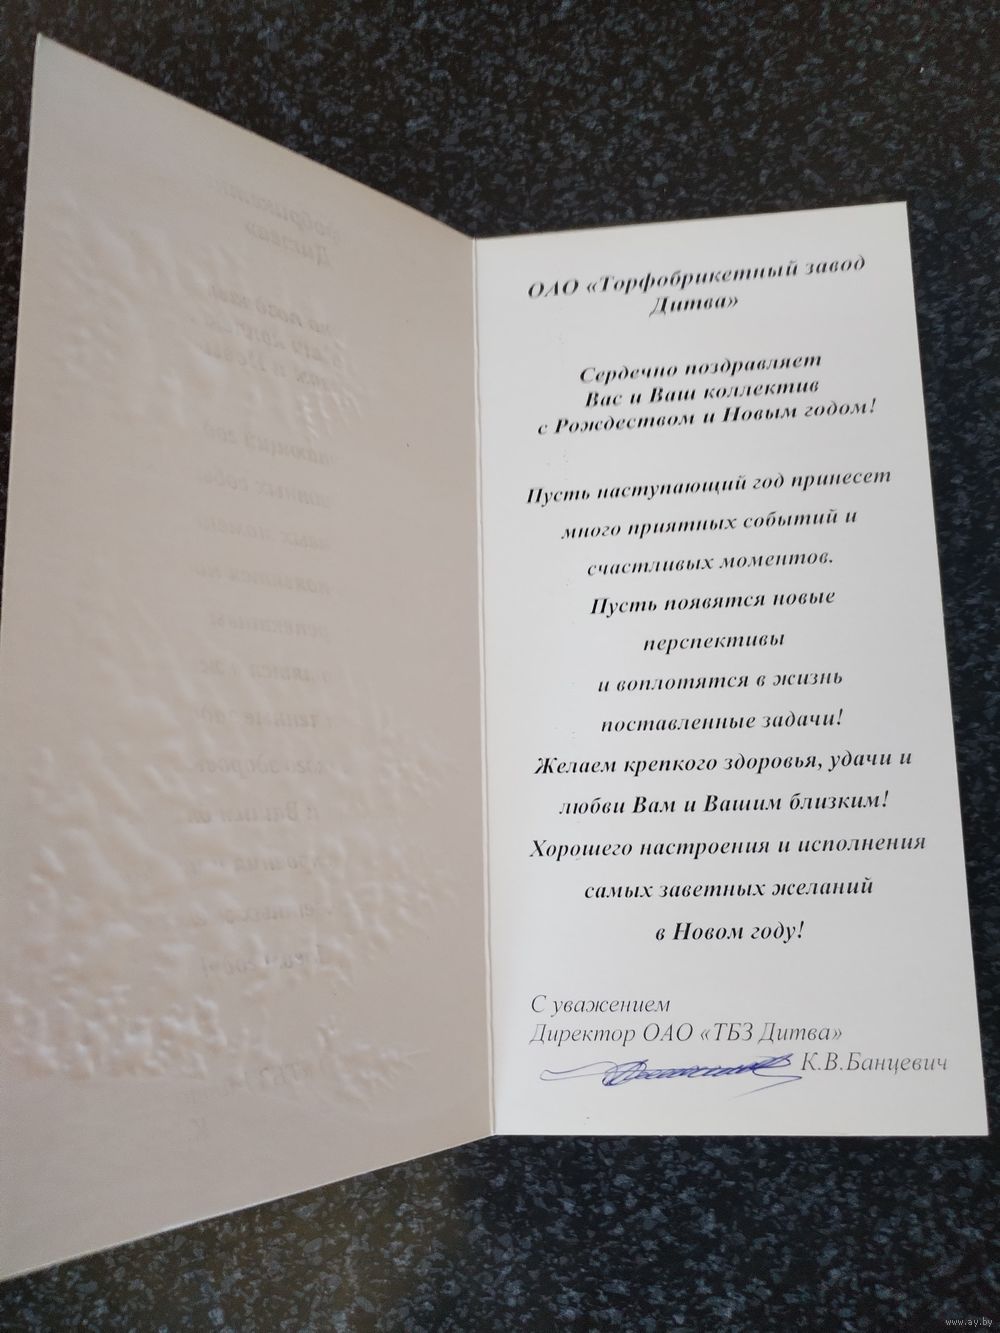 ОАО «Торфобрикетный завод
Дитва»
Сердечно поздравляет
Вас и Ваш коллектив
с Рождеством и Новым годом!
Пусть наступающий год принесет
много приятных событий и
счастливых моментов.
Пусть появятся новые
перспективы
и воплотятся в жизнь
поставленные задачи!
Желаем крепкого здоровья, удачи и
любви Вам и Вашим близким!
Хорошего настроения и исполнения
самых заветных желаний
в Новом году!
С уважением
Директор ОАО «ТБЗ Дитва»
К.В.Банцевич
www.ay.by